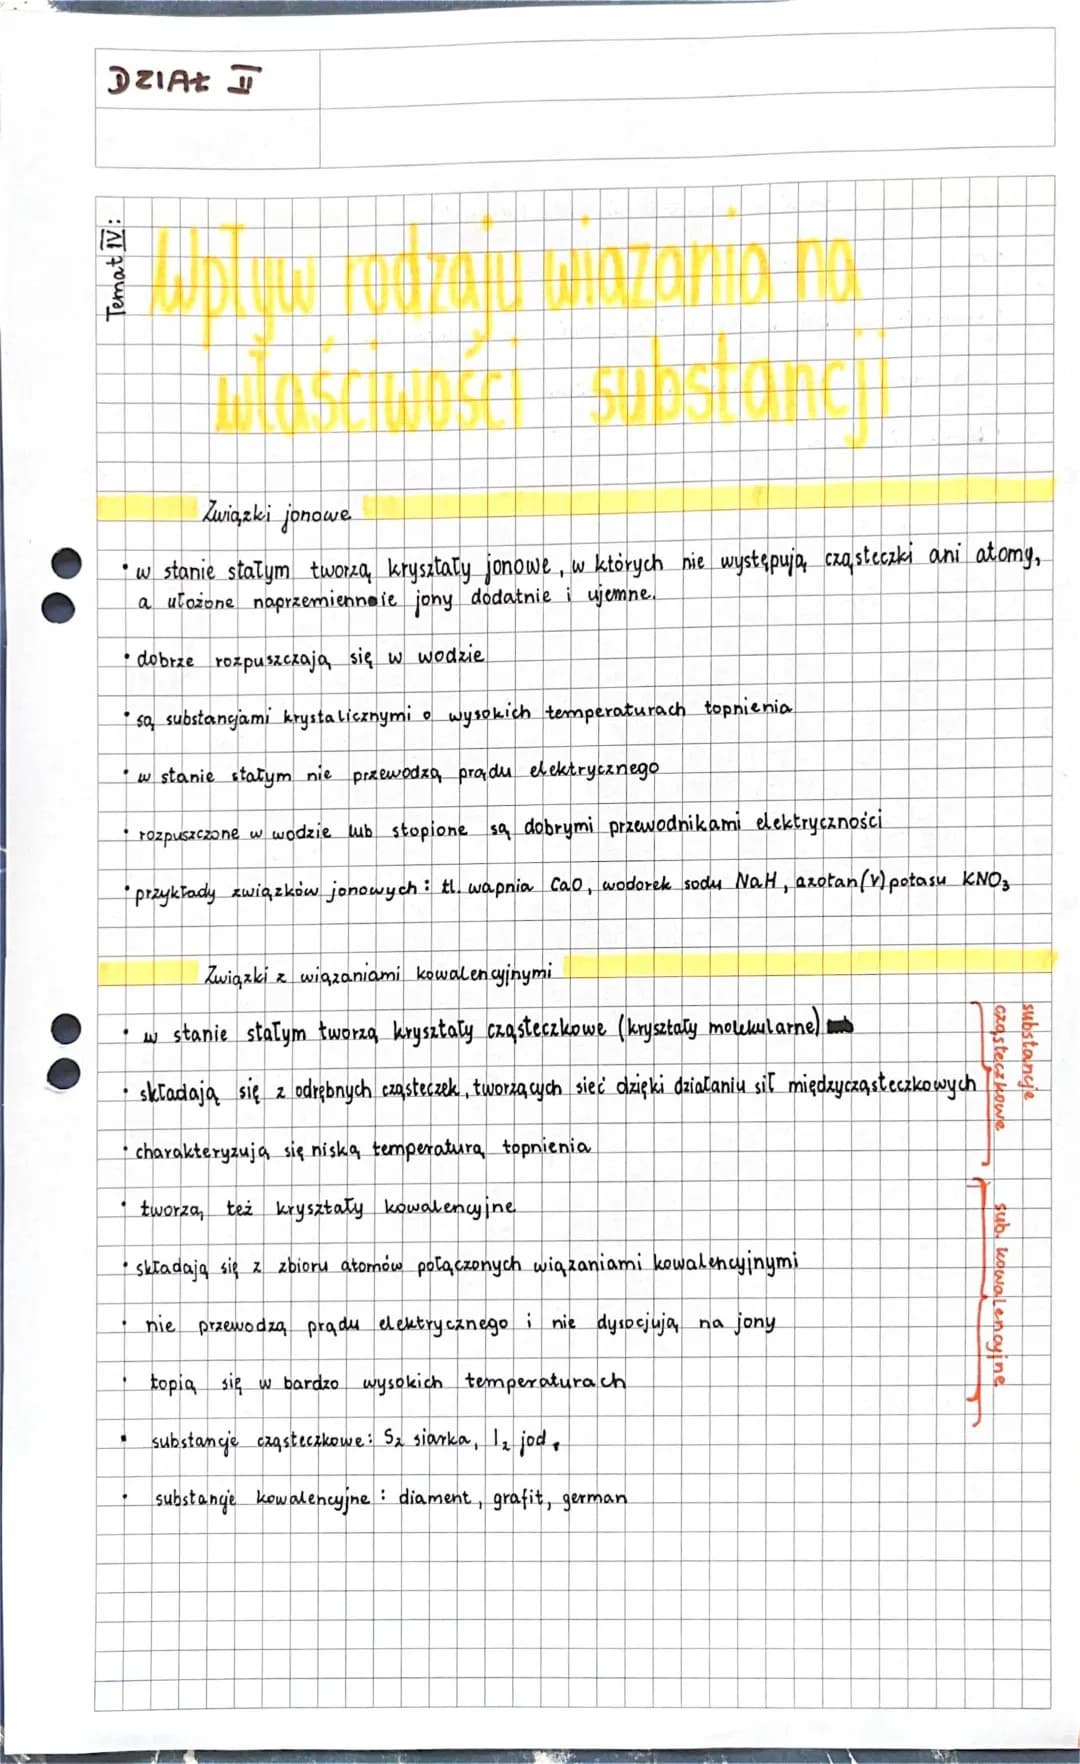 DZIAŁ II
Temat IV:
Wpływ rodzaju wiązania na
właściwości substancji
Związki jonowe
• w stanie stałym tworzą kryształy jonowe, w których nie występują cząsteczki ani atomy,
a ułożone naprzemiennie jony dodatnie i ujemne.
• dobrze rozpuszczają się w wodzie
• są substancjami krystalicznymi o wysokich temperaturach topnienia
• w stanie stałym nie przewodzą prądu elektrycznego
• rozpuszczone w wodzie lub stopione są dobrymi przewodnikami elektryczności
• przykłady związków jonowych: tl. wapnia CaO, wodorek sodu NaH, azotan(V) potasu KNO₃
Związki z wiązaniami kowalencyjnymi
• w stanie stałym tworzą kryształy cząsteczkowe (kryształy molekularne)
• składają się z odrębnych cząsteczek, tworzących sieć dzięki działaniu sił międzycząsteczkowych
• charakteryzują się niską temperaturą topnienia
substancje
cząsteczkowe
• tworzą też kryształy kowalencyjne
• składają się z zbioru atomów połączonych wiązaniami kowalencyjnymi
• nie przewodzą prądu elektrycznego i nie dysocjują na jony
• topią się w bardzo wysokich temperaturach
sub. kowalencyjne
• substancje cząsteczkowe: S₂ siarka, I₂ jod,
• substancje kowalencyjne: diament, grafit, german